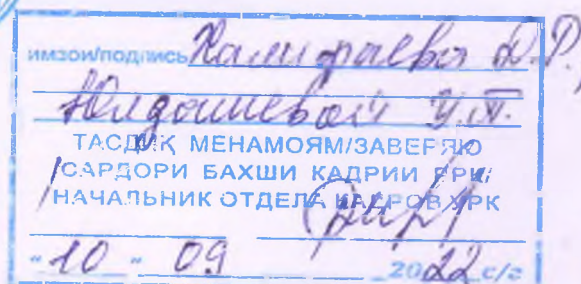 имзои/подпись Халифаева Д.Р.,
Юлдашевой У.П.
ТАСДИҚ МЕНАМОЯМ/ЗАВЕРЯЮ
САРДОРИ БАХШИ КАДРИИ ЕРК/
НАЧАЛЬНИК ОТДЕЛА КАДРОВ УРК
"10" 09 2022 с/г